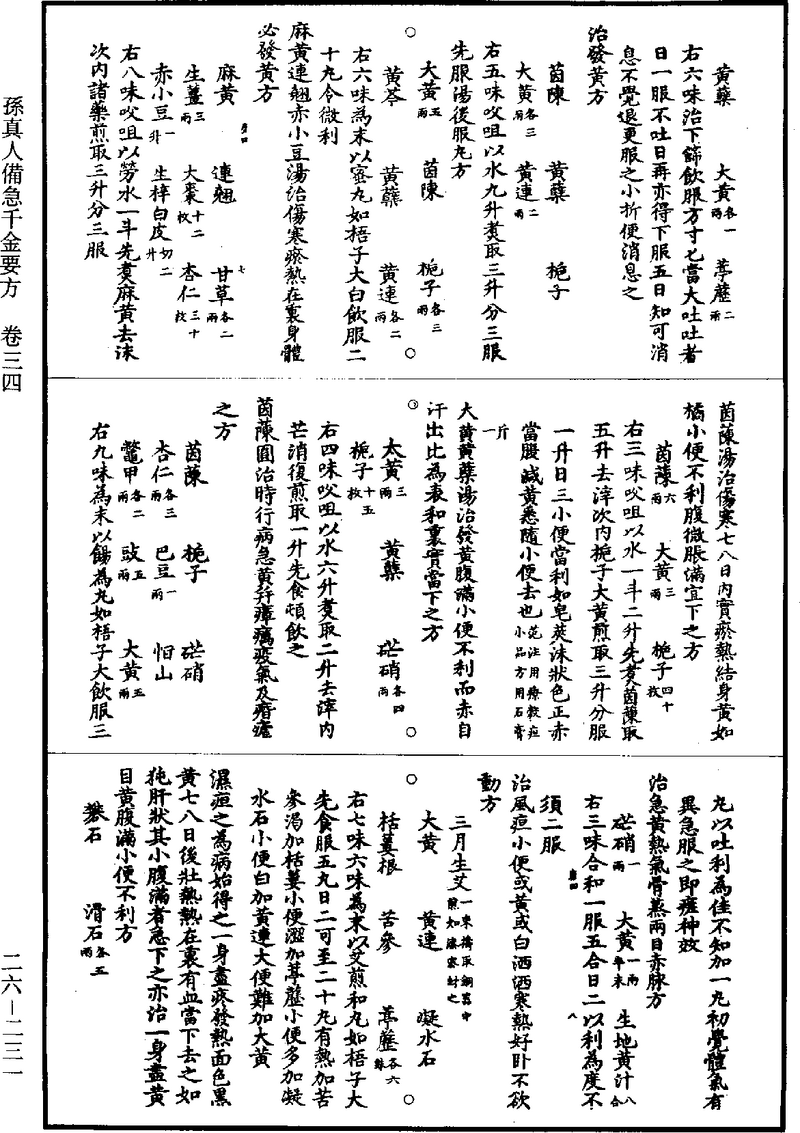 孫真人備急千金要方　卷三四
二六—二三一
黃蘗　大黃各一兩　葶藶二兩
右六味治下篩飲服方寸匕當大吐吐者
日一服不吐日再亦得下服五日知可消
息不覺退更服之小折便消息之
治發黃方
茵陳　黃蘗　梔子
大黃各三兩　黃連二兩
右五味㕮咀以水九升煑取三升分三服
先服湯後服丸方
大黃五兩　茵陳　梔子各三兩
黃芩　黃蘗　黃連各二兩
右六味為末以蜜丸如梧子大白飲服二
十丸令微利
麻黃連翹赤小豆湯治傷寒瘀熱在裏身體
必發黃方
麻黃　連翹　甘草各二兩
生薑三兩　大棗十二枚　杏仁三十枚
赤小豆一升　生梓白皮切二升
右八味㕮咀以勞水一斗先煑麻黃去沫
次內諸藥煎取三升分三服
茵蔯湯治傷寒七八日內實瘀熱結身黃如
橘小便不利腹微脹滿宜下之方
茵蔯六兩　大黃三兩　梔子四十枚
右三味㕮咀以水一斗二升先煑茵蔯取
五升去滓次內梔子大黃煎取三升分服
一升日三小便當利如皂莢沫狀色正赤
當腹減黃悉隨小便去也范汪用療穀疸小品方用石膏
一斤
大黃黃蘗湯治發黃腹滿小便不利而赤自
汗出此為表和裏實當下之方
大黃三兩　黃蘗　芒硝各四兩
梔子十五枚
右四味㕮咀以水六升煑取二升去滓內
芒消復煎取一升先食頓飲之
茵蔯圓治時行病急黃并瘴癘疫氣及痎瘧
之方
茵蔯　梔子　芒硝
杏仁各三兩　巴豆一兩　恒山
鼈甲各二兩　豉五兩　大黃五兩
右九味為末以餳為丸如梧子大飲服三
丸以吐利為佳不知加一丸初覺體氣有
異急服之即瘥神效
治急黃熱氣骨蒸兩目赤脉方
芒硝一兩　大黃一兩半末　生地黃汁八合
右三味合和一服五合日二以利為度不
須二服
治風疸小便或黃或白洒洒寒熱好卧不欲
動方
三月生艾一束擣取銅器中煎如漆密封之
大黃　黃連　凝水石
栝蔞根　苦參　葶藶各六銖
右七味六味為末以艾煎和丸如梧子大
先食服五丸日二可至二十丸有熱加苦
參渴加栝蔞小便澀加葶藶小便多加凝
水石小便白加黃連大便難加大黃
濕疸之為病始得之一身盡疼發熱面色黑
黃七八日後壯熱熱在裏有血當下去之如
㹠肝狀其小腹滿者急下之亦治一身盡黃
目黃腹滿小便不利方
礬石　滑石各五兩